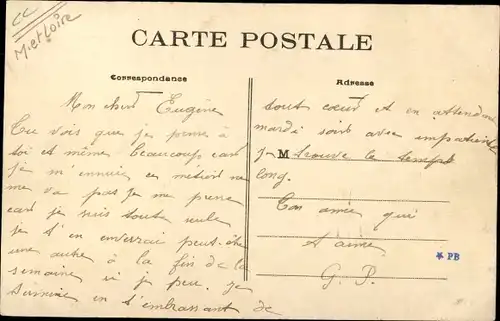 CC
M. et Loire
CARTE POSTALE
Correspondance
Adresse
Mon cher Eugène
Tu vois que je pense à
toi et même beaucoup car
je m'ennuie ce métier ne
me va pas je me
car je suis toute seule
je t'en enverrai peut-être
une autre à la fin de la
semaine si je peux. Je
termine en t'embrassant de
tout cœur et en attendant
mardi soir avec impatience
je M trouve le temps
long.
Ton amie qui
t'aime
G. P.
* PB